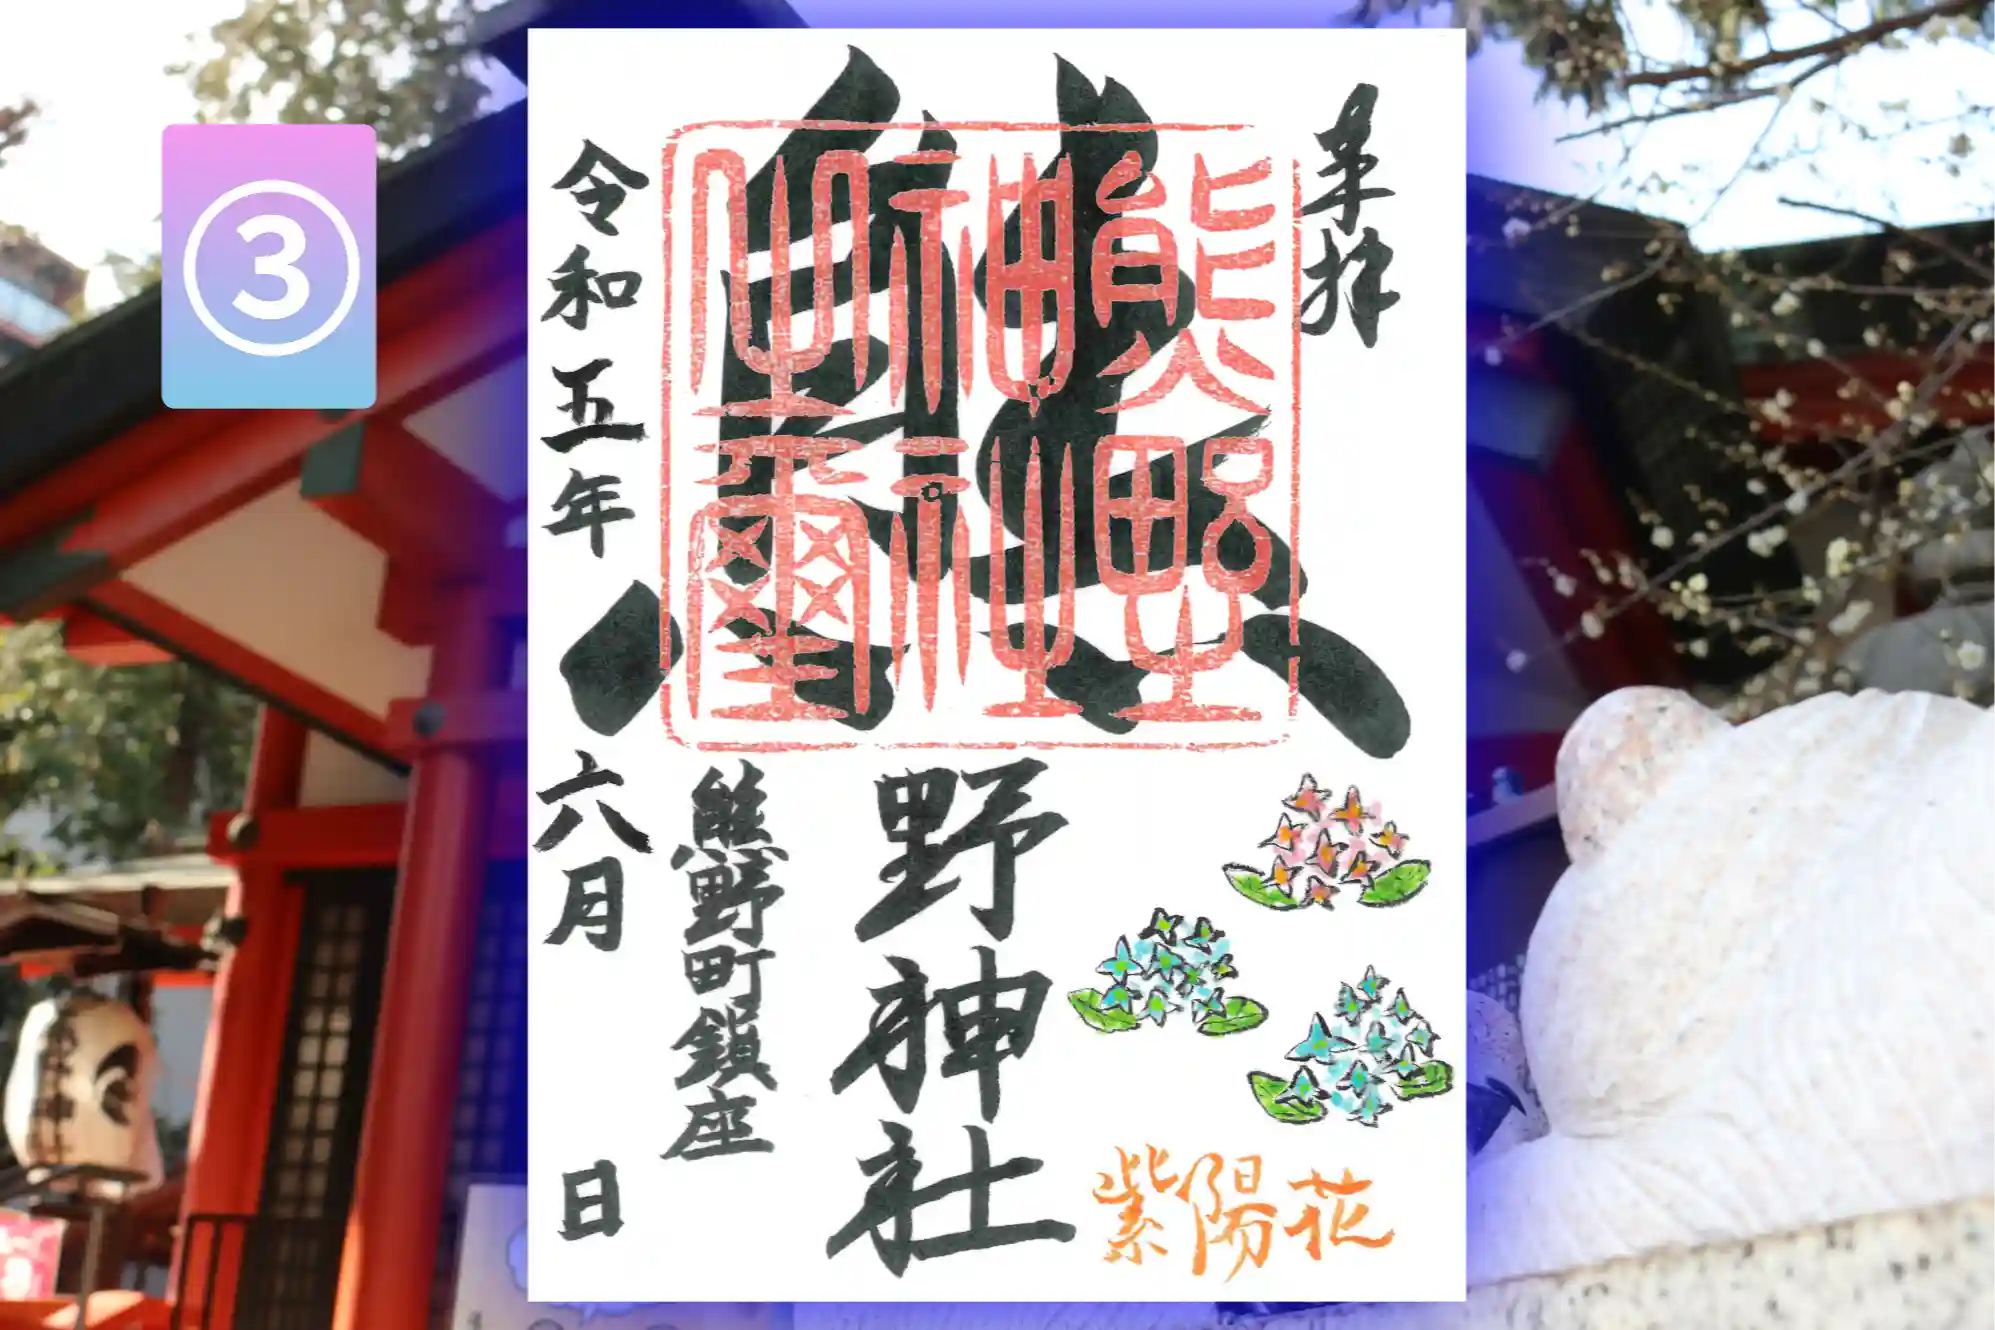 ③
奉拝
熊野神社
熊野
神社
紫陽花
熊野町鎮座
令和五年六月 日